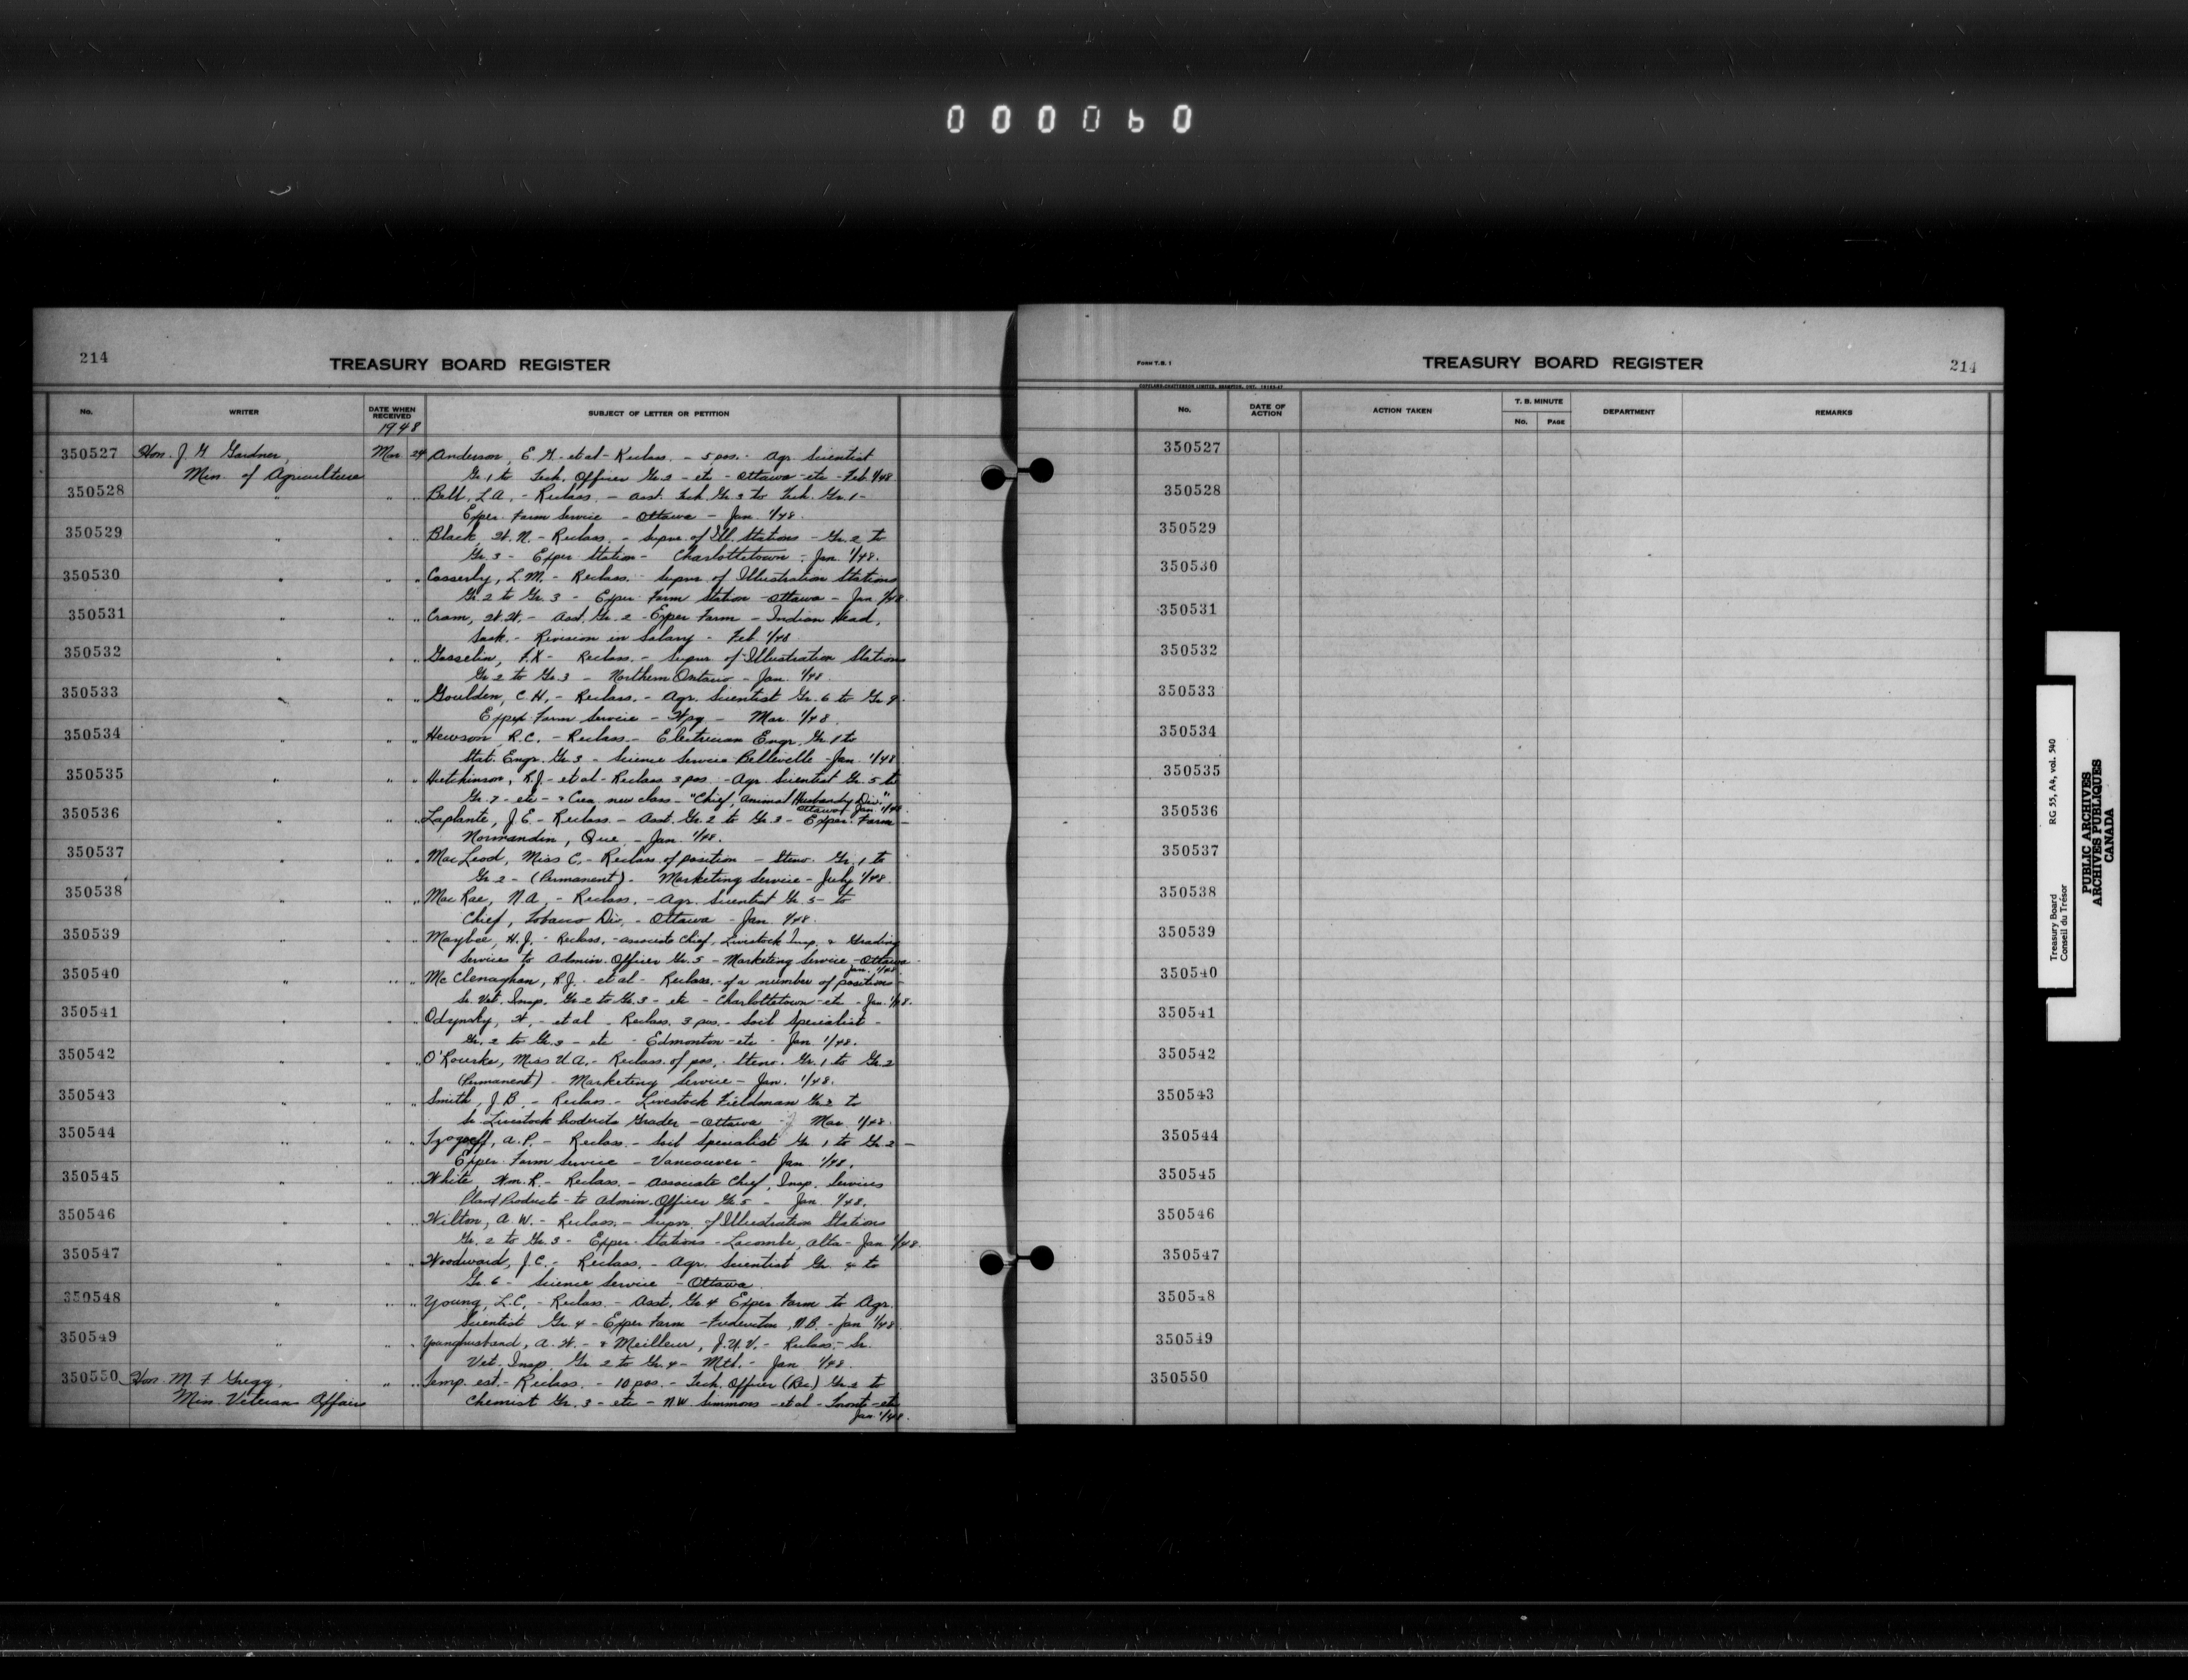 000060
214
TREASURY BOARD REGISTER
No. WRITER DATE WHEN RECEIVED SUBJECT OF LETTER OR PETITION
1948
350527 Hon. J G Gardner, Mar 24 Anderson, E. G. et al - Reclass. - 5 pos. - Agr. Scientist
Min. of Agriculture Gr. 1 to Tech. Officer Gr. 2 - etc - Ottawa - etc - Feb. 1/48
350528 " " " Bell, L.A. - Reclass. - Asst. Tech. Gr. 3 to Tech. Gr. 1 -
Exper. Farm Service - Ottawa - Jan. 1/48.
350529 " " " Black, W. N. - Reclass. - Supvr. of Ill. Stations - Gr. 2 to
Gr. 3 - Exper. Station - Charlottetown - Jan. 1/48.
350530 " " " Casserly, L.M. - Reclass. - Supvr. of Illustration Stations
Gr. 2 to Gr. 3 - Exper. Farm Station - Ottawa - Jan 1/48.
350531 " " " Cram, W.W. - Asst. Gr. 2 - Exper Farm - Indian Head,
Sask. - Revision in Salary - Feb. 1/48
350532 " " " Gosselin, F.X - Reclass. - Supvr. of Illustration Stations
Gr. 2 to Gr. 3 - Northern Ontario - Jan. 1/48.
350533 " " " Goulden, C.H. - Reclass. - Agr. Scientist Gr. 6 to Gr 9.
Exper. Farm Service - Wpg - Mar. 1/48.
350534 " " " Hewson, R.C. - Reclass. - Electrician Engr. Gr. 1 to
Stat. Engr. Gr. 3 - Science Service Belleville - Jan. 1/48
350535 " " " Hutchinson, R.J. - et al - Reclass 3 pos. - Agr. Scientist Gr. 5 to
Gr. 7 - etc - & Crea. new class - "Chief, Animal Husbandry Div."
Ottawa - Jan. 1/48.
350536 " " " Laplante, J.E. - Reclass. - Asst. Gr. 2 to Gr. 3 - Exper. Farm -
Normandin, Que. - Jan. 1/48.
350537 " " " MacLeod, Miss C. - Reclass. of position - Steno. Gr. 1 to
Gr. 2 - (Permanent) - Marketing Service - July 1/48.
350538 " " " MacRae, N.A. - Reclass. - Agr. Scientist Gr. 5 - to
Chief, Tobacco Div. - Ottawa - Jan. 1/48.
350539 " " " Maybee, H.J. - Reclass. - Associate Chief, Livestock Insp. & Grading
Services to Admin. Officer Gr. 5 - Marketing Service - Ottawa -
Jan. 1/48.
350540 " " " McClenaghan, R.J. - et al - Reclass. - of a number of positions -
Sr. Vet. Insp. Gr. 2 to Gr. 3 - etc - Charlottetown - etc - Jan. 1/48.
350541 " " " Odynsky, W. - et al - Reclass. 3 pos. - Soil Specialist -
Gr. 2 to Gr. 3 - etc - Edmonton - etc - Jan. 1/48.
350542 " " " O'Rourke, Miss U.A. - Reclass. of pos. - Steno. Gr. 1 to Gr. 2
(Permanent) - Marketing Service - Jan. 1/48.
350543 " " " Smith, J.B. - Reclass. - Livestock Fieldman Gr. 2 to
Sr. Livestock Products Grader - Ottawa - Mar 1/48.
350544 " " " A.P. - Reclass. - Soil Specialist Gr. 1 to Gr. 2 -
Exper. Farm Service - Vancouver - Jan. 1/48.
350545 " " " White, Wm. R. - Reclass. - Associate Chief, Insp. Services
Plant Products - to Admin. Officer Gr. 5 - Jan. 1/48.
350546 " " " Wilton, A.W. - Reclass. - Supvr. of Illustration Stations
Gr. 2 to Gr. 3 - Exper. Stations - Lacombe, Alta - Jan 1/48.
350547 " " " Woodward, J.C. - Reclass. - Agr. Scientist Gr. 4 to
Gr. 6 - Science Service - Ottawa.
350548 " " " Young, L.C. - Reclass. - Asst. Gr. 4 Exper Farm to Agr.
Scientist Gr. 4 - Exper Farm - Fredericton, N.B. - Jan 1/48.
350549 " " " Younghusband, A.W. - & Meilleur, J.U.V. - Reclass. - Sr.
Vet. Insp. Gr. 2 to Gr. 4 - Mtl. - Jan. 1/48.
350550 Hon. M F Gregg, " " Temp. est. - Reclass. - 10 pos. - Tech. Officer (Res) Gr. 2 to
Min. Veterans Affairs Chemist Gr. 3 - etc - N.W. Simmons - et al - Toronto - etc
Jan 1/48.
FORM T.B. 1
TREASURY BOARD REGISTER
214
No. DATE OF ACTION ACTION TAKEN T. B. MINUTE DEPARTMENT REMARKS
No. PAGE
350527
350528
350529
350530
350531
350532
350533
350534
350535
350536
350537
350538
350539
350540
350541
350542
350543
350544
350545
350546
350547
350548
350549
350550
Treasury Board RG 55, A4, vol. 540
Conseil du Trésor
PUBLIC ARCHIVES
ARCHIVES PUBLIQUES
CANADA